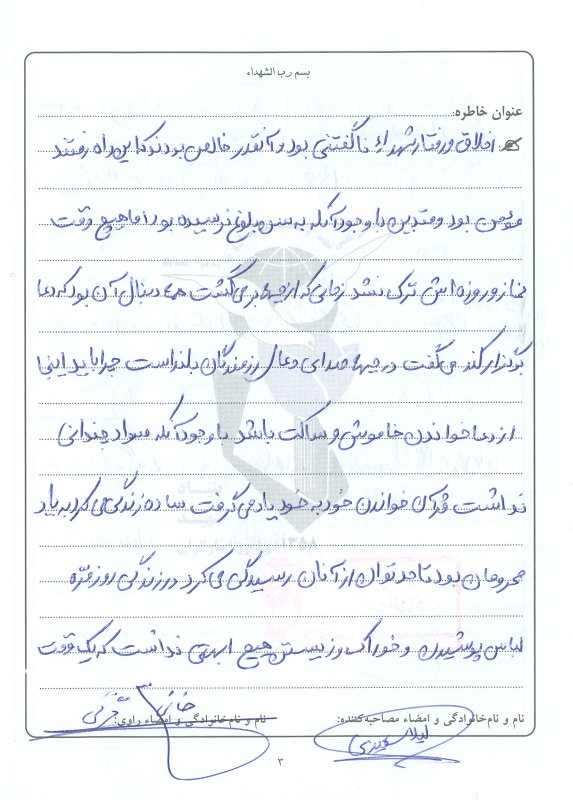 بسم رب الشهداء
عنوان خاطره:
اخلاق و رفتار شهداء ناگفتنی بود و آنقدر خالص بودند که این راه رفتند
مؤمن بود و متدین با وجود آنکه به سن بلوغ نرسیده بود اما هیچ وقت
نماز و روزه اش ترک نشد زمانی که از جبهه بر می گشت همه دنبال آن بود که دعا
برگزار کند می گفت در جبهه صدای دعای رزمندگان بلند است چرا باید اینجا
از دعا خواندن خاموش و ساکت باشد با وجود آنکه سواد چندانی
نداشت قرآن خواندن خود به خود یاد می گرفت ساده زندگی می کرد به یاد
محرومان بود تا حد توان از آنان رسیدگی می کرد در زندگی روزمرّه
لباس پوشیدن و خوراک و زیستن هیچ اهمیتی نداشت که یک وقت
نام و نام خانوادگی و امضاء مصاحبه کننده:
نام و نام خانوادگی و امضاء راوی:
خانم
لیلا
۳